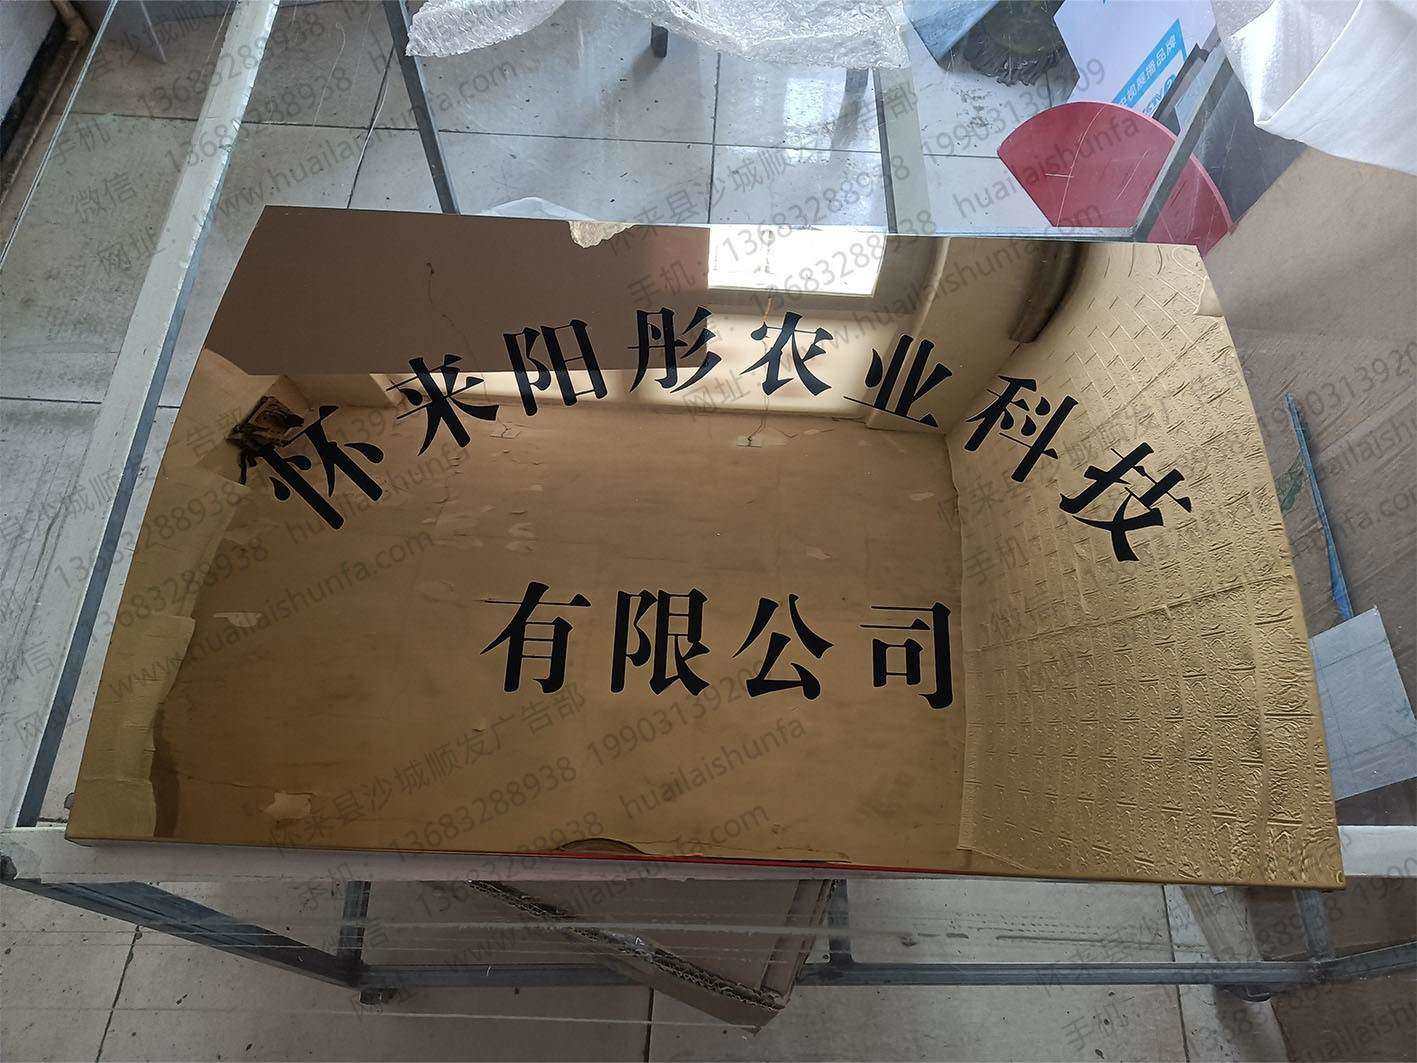 怀来阳彤农业科技
有限公司
怀来县沙城顺发广告部
手机：13683288938 19903139209
微信：13683288938 huailaishunfa
网址：www.huailaishunfa.com